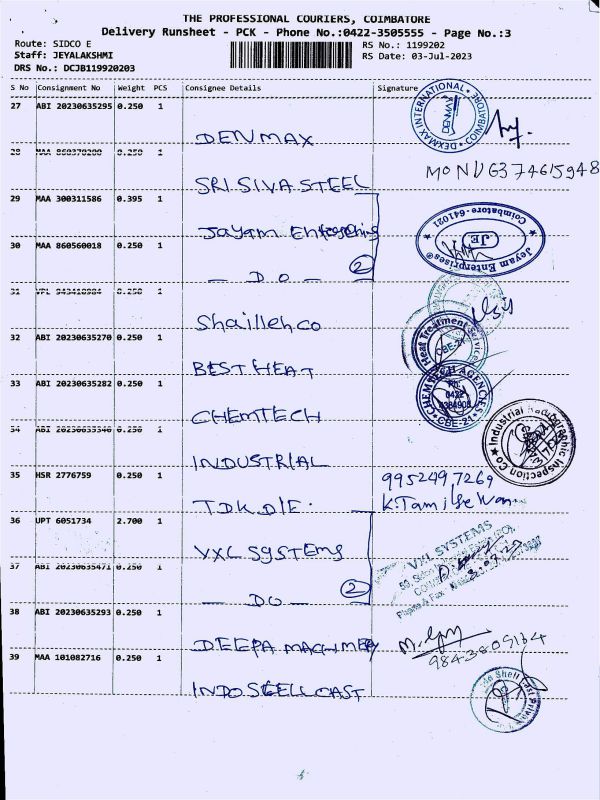 THE PROFESSIONAL COURIERS, COIMBATORE
Delivery Runsheet - PCK - Phone No.:0422-3505555 - Page No.:3
Route: SIDCO E
RS No.: 1199202
Staff: JEYALAKSHMI
RS Date: 03-Jul-2023
DRS No.: DCJB119920203
S No Consignment No Weight PCS Consignee Details Signature
27 ABI 20230635295 0.250 1
DENMAX INTERNATIONAL
COIMBATORE
DENMAX
28 MAA 0.250 1
MONI 6374615948
SRI SIVA STEEL
29 MAA 300311586 0.395 1
Jayam Enterprising
Jeyam Enterprises
Coimbatore-641021
JE
30 MAA 860560018 0.250 1
— DO — 2
31 0.250 1
Shaillehco
32 ABI 20230635270 0.250 1
Heat Treatment
CBE-21
BEST HEAT
33 ABI 20230635282 0.250 1
CHEMTECH AGENCY
CBE-21
CHEMTECH
34 ABI 0.250 1
Industrial Radiographic Inspection Co
INDUSTRIAL
35 HSR 2776759 0.250 1
9952497269
K.Tamilselvan
TDK DIE.
36 UPT 6051734 2.700 1
VXL SYSTEMS
VXL Systems
37 ABI 20230635471 0.250 1
— DO — 2
38 ABI 20230635293 0.250 1
DEEPA MACHINERY
9843809164
39 MAA 101082716 0.250 1
INDO SHELL CAST